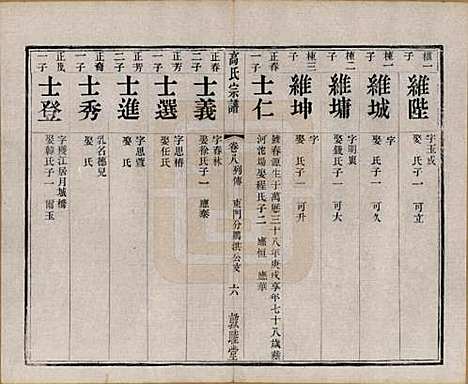 植一子
維陛
字玉成
娶 氏子一 可立
棟三子
維城
字
娶 氏子一 可久
棟二子
維墉
字明襄
娶錢氏子一 可大
棟三子
維坤
字
娶 氏子一 可升
正春一子
士仁
號春源生于萬曆三十八年庚戌享年七十八歲葬
河 塲娶程氏子二 應恒 應華
高氏宗譜
卷八列傳 東門分鵬洪公支 六
敦睦堂
正春二子
士義
字春林
娶徐氏子一 應泰
正芳一子
士選
字思椿
娶任氏
正芳二子
士進
字思萱
娶 氏
正奇一子
士秀
乳名德兒
娶 氏
正茂一子
士登
字廈江居月城橋
娶韓氏子一 爾玉